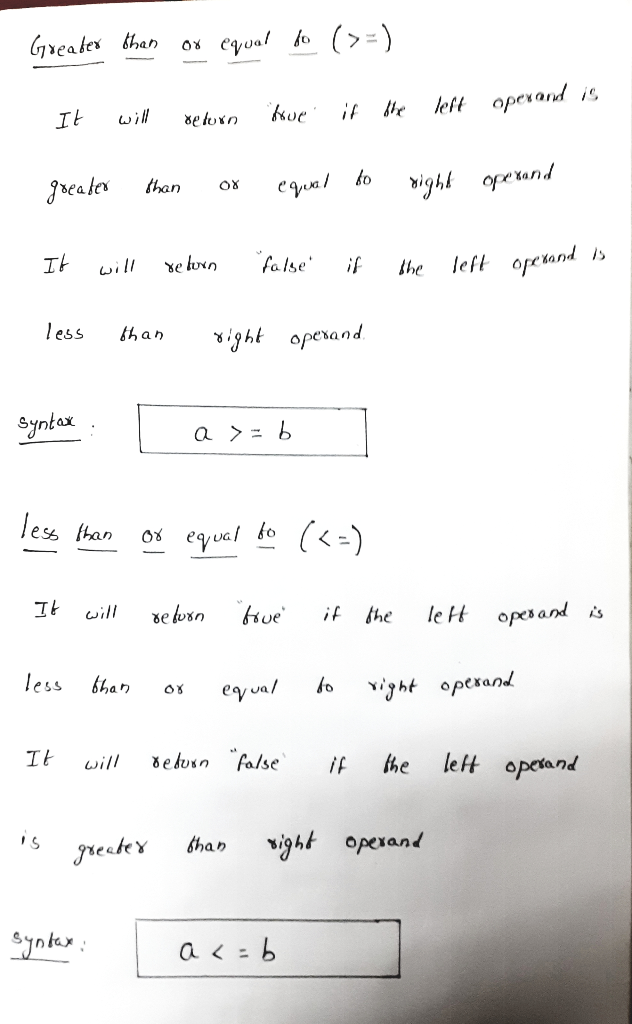 Greater than or equal to (>=)
It will return 'true' if the left operand is
greater than or equal to right operand
It will return "false' if the left operand is
less than right operand.
syntax : a >= b
less than or equal to (<=)
It will return "true' if the left operand is
less than or equal to right operand
It will return "false' if the left operand
is greater than right operand
syntax : a <= b